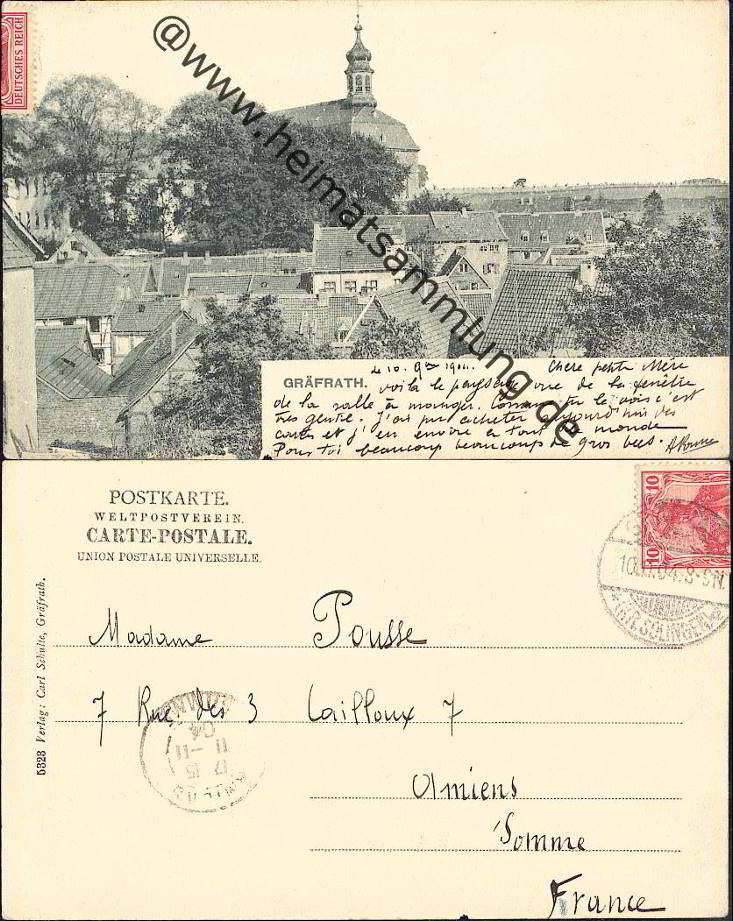 DEUTSCHES REICH
@www.heimatsammlung.de
GRÄFRATH.
le 10. 9bre 1904. Chère petite Mère
voilà le paysage vue de la fenêtre
de la salle à manger. Comme tu le vois c'est
très gentil. J'ai pu acheter aujourd'hui des
cartes et j'en envoie à tout le monde
Pour toi beaucoup beaucoup de gros bees. APousse
POSTKARTE.
WELTPOSTVEREIN.
CARTE-POSTALE.
UNION POSTALE UNIVERSELLE.
10
10
(KR. SOLINGEN)
5323 Verlag: Carl Schulte, Gräfrath.
Madame Pousse
7 Rue des 3 Cailloux 7
Amiens
Somme
France
17 15
11 - 11
04